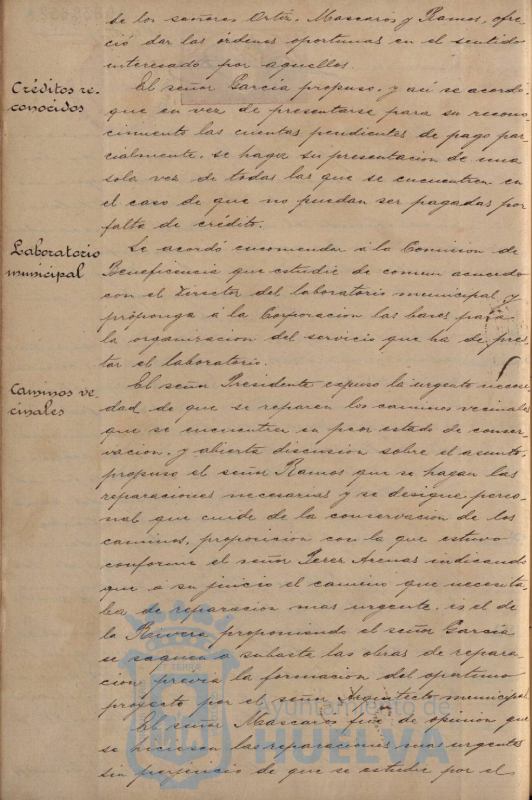 de los señores Ortiz, Mascarós y Ramos, ofre-
ció dar las órdenes oportunas en el sentido
interesado por aquellos.
Créditos re-
conocidos
El señor García propuso, y así se acordó
que en vez de presentarse para su recono-
cimiento las cuentas pendientes de pago par-
cialmente, se haga su presentación de una
sola vez de todas las que se encuentren en
el caso de que no puedan ser pagadas por
falta de crédito.
Laboratorio
municipal
Se acordó encomendar a la Comision de
Beneficencia que estudie de comun acuerdo
con el Director del laboratorio municipal y
proponga a la Corporacion las bases para
la organizacion del servicio que ha de pres-
tar el laboratorio.
Caminos ve-
cinales
El señor Presidente expuso la urgente necesi-
dad de que se reparen los caminos vecinales
que se encuentren en peor estado de conser-
vacion, y abierta discusión sobre el asunto,
propuso el señor Ramos que se hagan las
reparaciones necesarias y se designe perso-
nal que cuide de la conservacion de los
caminos, proposicion con la que estuvo
conforme el señor Perez Arenas indicando
que a su juicio el camino que necesita-
ba de reparacion mas urgente, es el de
la Rivera, proponiendo el señor García
se saquen a subasta las obras de repara-
cion previa la formacion del oportuno
proyecto por el señor Arquitecto municipal
El señor Mascarós fué de opinion que
se hiciesen las reparaciones mas urgentes
sin perjuicio de que se estudie por el
Ayuntamiento de
HUELVA